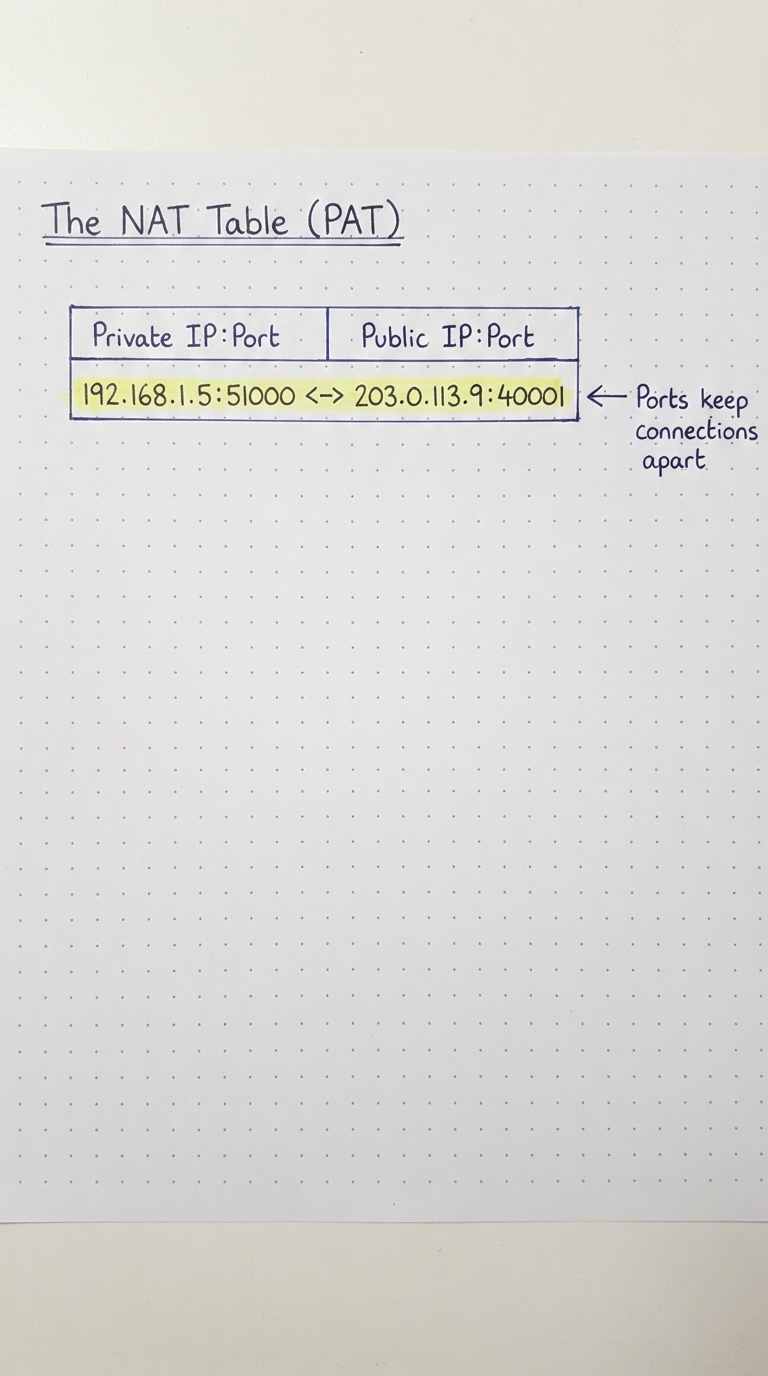 The NAT Table (PAT)
Private IP:Port Public IP:Port
192.168.1.5:51000 <-> 203.0.113.9:40001
← Ports keep
connections
apart